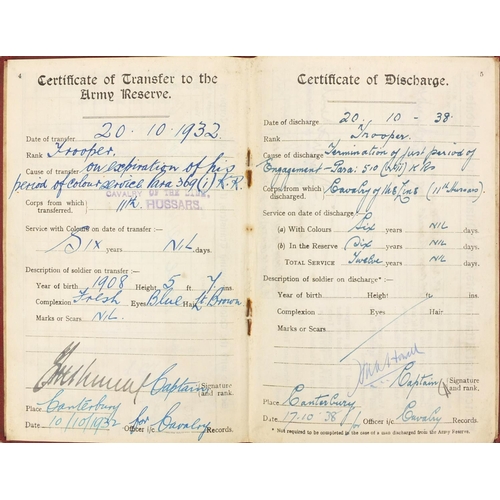 4
Certificate of Transfer to the
Army Reserve.
Date of transfer 20.10.1932.
Rank Trooper.
Cause of transfer on expiration of his
period of colour service Para 369 (i) K.R.
Corps from which transferred. 11th CAVALRY OF THE LINE HUSSARS.
Service with Colours on date of transfer:—
Six years NIL days.
Description of soldier on transfer:—
Year of birth 1908 Height 5 ft 7 ins.
Complexion Fresh Eyes Blue Hair Lt Brown
Marks or Scars NIL.
Captain (Signature and rank.
Place Canterbury
Date 10/10/1932 Officer i/c for Cavalry Records.
5
Certificate of Discharge.
Date of discharge 20 - 10 - 38.
Rank Trooper.
Cause of discharge Termination of first period of
Engagement - Para: 510 K Rs
Corps from which discharged. Cavalry of the Line (11th Hussars).
Service on date of discharge:—
(a) With Colours Six years NIL days.
(b) In the Reserve Six years NIL days.
TOTAL SERVICE Twelve years NIL days.
Description of soldier on discharge*:—
Year of birth Height ft. ins.
Complexion Eyes Hair
Marks or Scars
Captain (Signature and rank.
Place Canterbury
Date 17-10-38 Officer i/c Cavalry Records.
* Not required to be completed in the case of a man discharged from the Army Reserve.